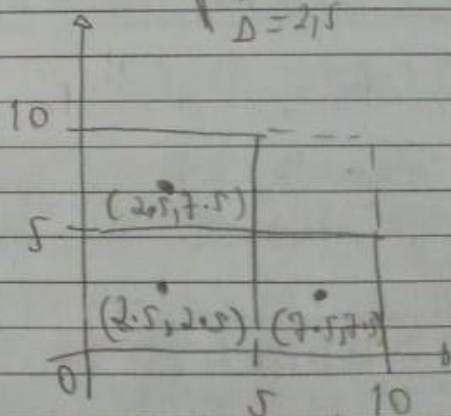 Δ=2,5
10
(2.5,7.5)
5
(2.5,2.5) (7.5,7.5)
0 5 10